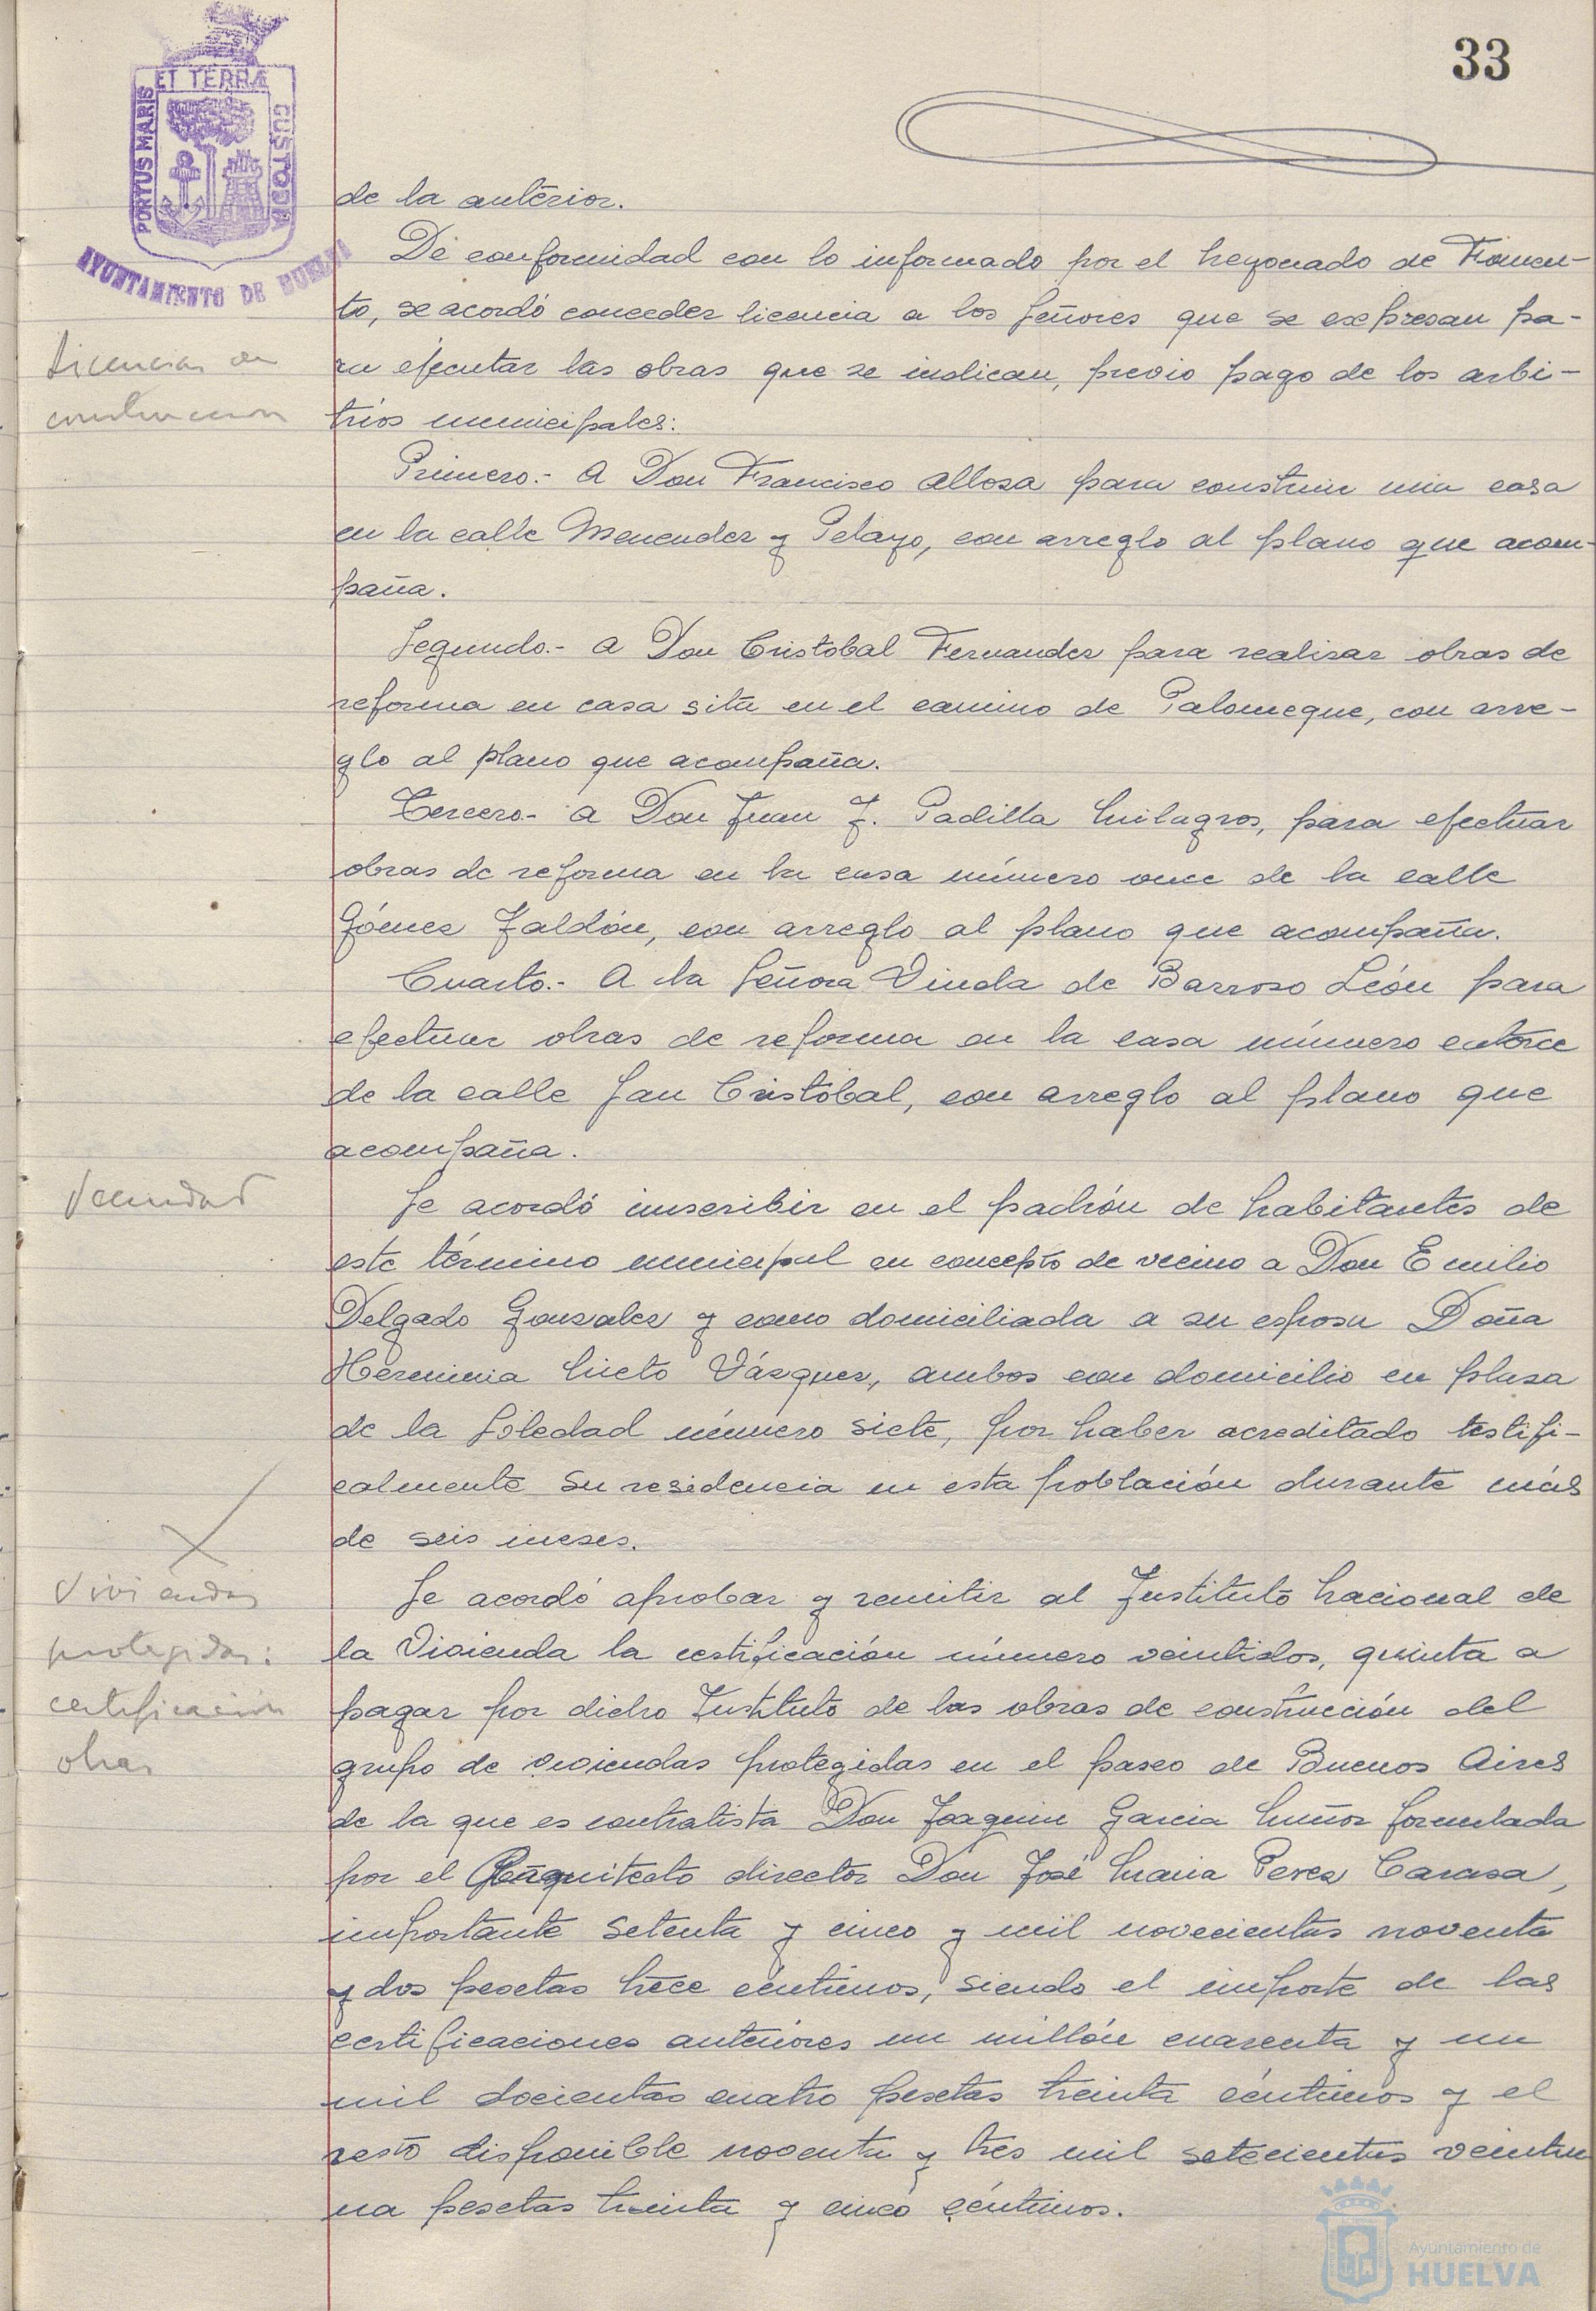 33
PORTUS MARIS
ET TERRÆ
CUSTODIA
AYUNTAMIENTO DE HUELVA
de la anterior.
De conformidad con lo informado por el Negociado de Fomen-
to, se acordó conceder licencia a los Señores que se expresan pa-
Licencias de
ra ejecutar las obras que se indican, previo pago de los arbi-
construccion
trios municipales:
Primero.- A Don Francisco Allosa para construir una casa
en la calle Menendez y Pelayo, con arreglo al plano que acom-
paña.
Segundo.- A Don Cristobal Fernandez para realizar obras de
reforma en casa sita en el camino de Palomeque, con arre-
glo al plano que acompaña.
Tercero.- A Don Juan J. Padilla Milagros, para efectuar
obras de reforma en la casa número once de la calle
Gómez Jaldón, con arreglo al plano que acompaña.
Cuarto.- A la Señora Viuda de Barroso León para
efectuar obras de reforma en la casa número catorce
de la calle San Cristóbal, con arreglo al plano que
acompaña.
Vecindad
Se acordó inscribir en el padrón de habitantes de
este término municipal en concepto de vecino a Don Emilio
Delgado Gonzalez y como domiciliada a su esposa Doña
Herminia Nieto Vázquez, ambos con domicilio en plaza
de la Soledad número siete, por haber acreditado testifi-
calmente su residencia en esta población durante más
de seis meses.
Viviendas
Se acordó aprobar y remitir al Instituto Nacional de
protegidas:
la Vivienda la certificación número veintidos, quinta a
certificación
pagar por dicho Instituto de las obras de construcción del
obras
grupo de viviendas protegidas en el paseo de Buenos Aires
de la que es contratista Don Joaquin Garcia Muñoz formulada
por el Arquitecto director Don José Maria Perez Carasa,
importante setenta y cinco y mil novecientas noventa
y dos pesetas trece céntimos, siendo el importe de las
certificaciones anteriores un millón cuarenta y un
mil docientas cuatro pesetas treinta céntimos y el
resto disponible noventa y tres mil setecientas veintiu
na pesetas treinta y cinco céntimos.
Ayuntamiento de
HUELVA